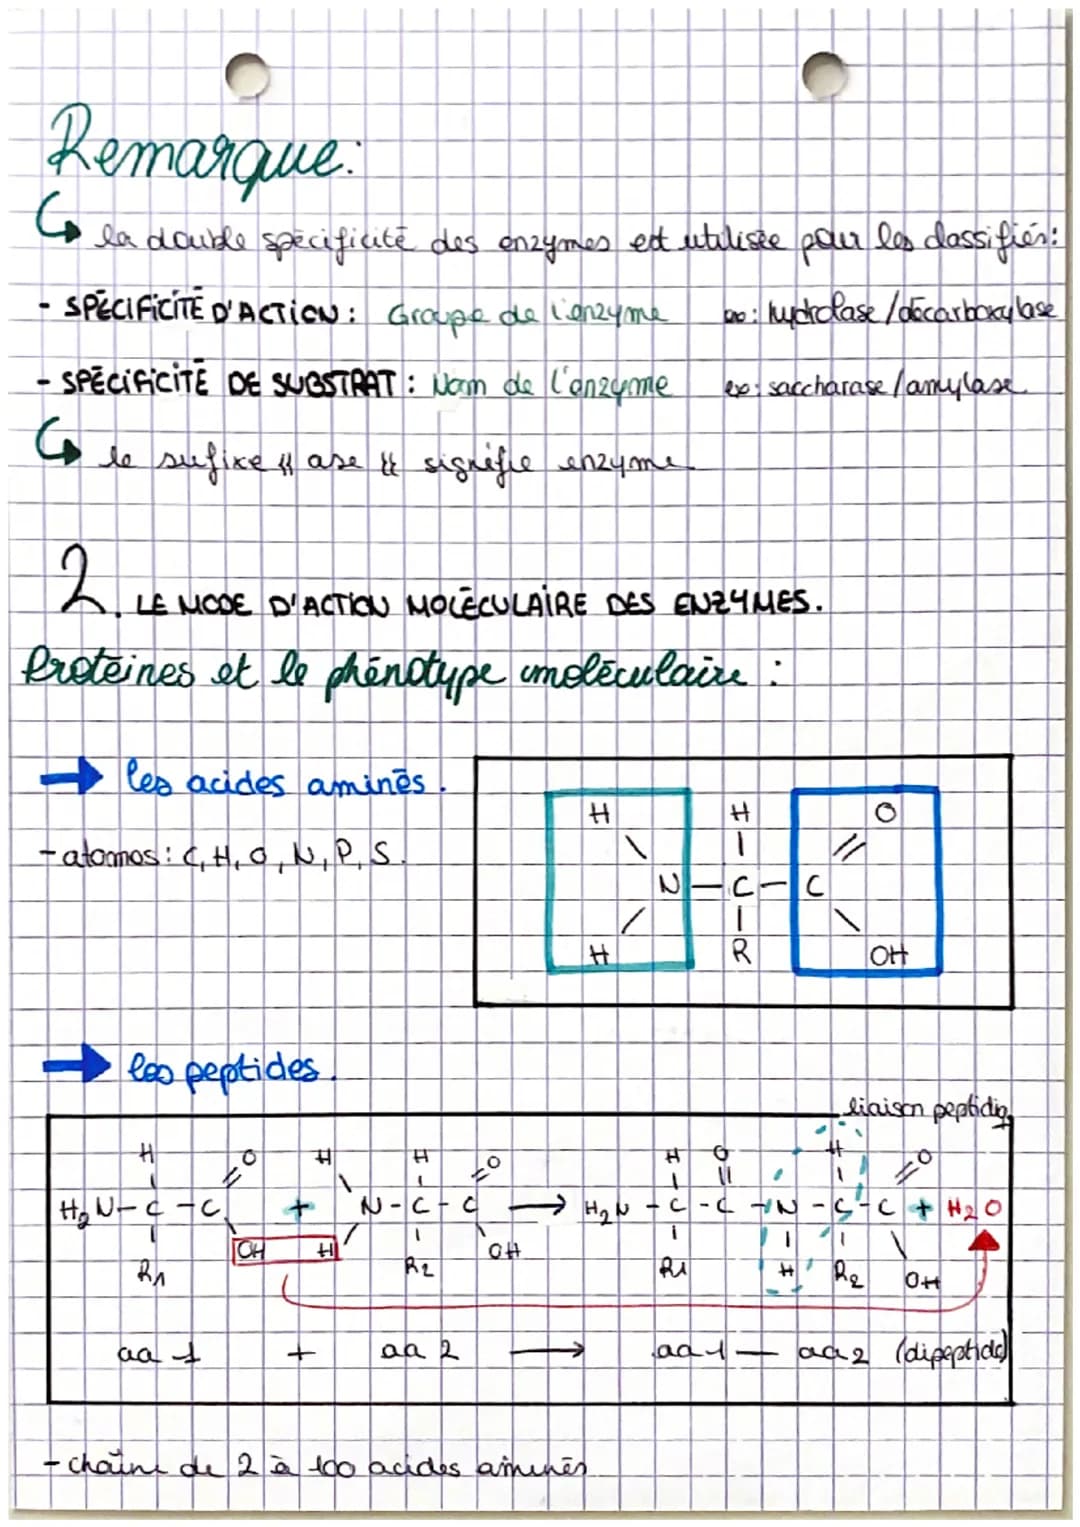 Remarque:
la double spécificité des enzymes est utilisée pour les classifiés:
- SPÉCIFICITÉ D'ACTION: Groupe de l'enzyme ex: hydrolase/décarboxylase
- SPÉCIFICITÉ DE SUBSTRAT: Nom de l'enzyme ex: saccharase/amylase
le sufixe " ase " signifie enzyme
2. LE MODE D'ACTION MOLÉCULAIRE DES ENZYMES.
Protéines et le phénotype moléculaire:
→ les acides aminés.
- atomos: C, H, O, N, P, S.
H H O
N - C - C
H R OH
→ les peptides.
liaison peptidiq
H O H H O H O H O
H2N - C - C + N - C - C → H2N - C - C - N - C - C + H2O
OH H OH
R1 R2 R1 H R2 OH
aa 1 + aa 2 → aa 1 — aa 2 (dipeptide)
- chaîne de 2 à 100 acides aminés